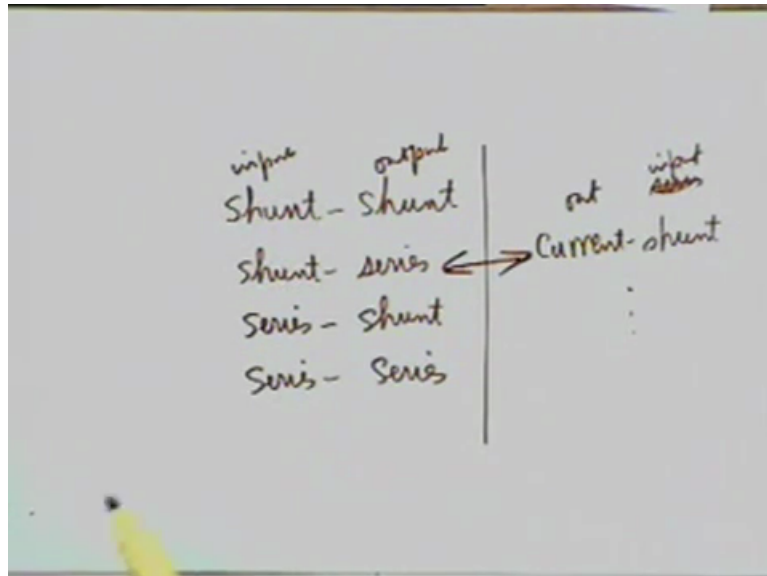 input output
Shunt - Shunt
Shunt - series
Series - Shunt
Series - Series
out input
Current - shunt